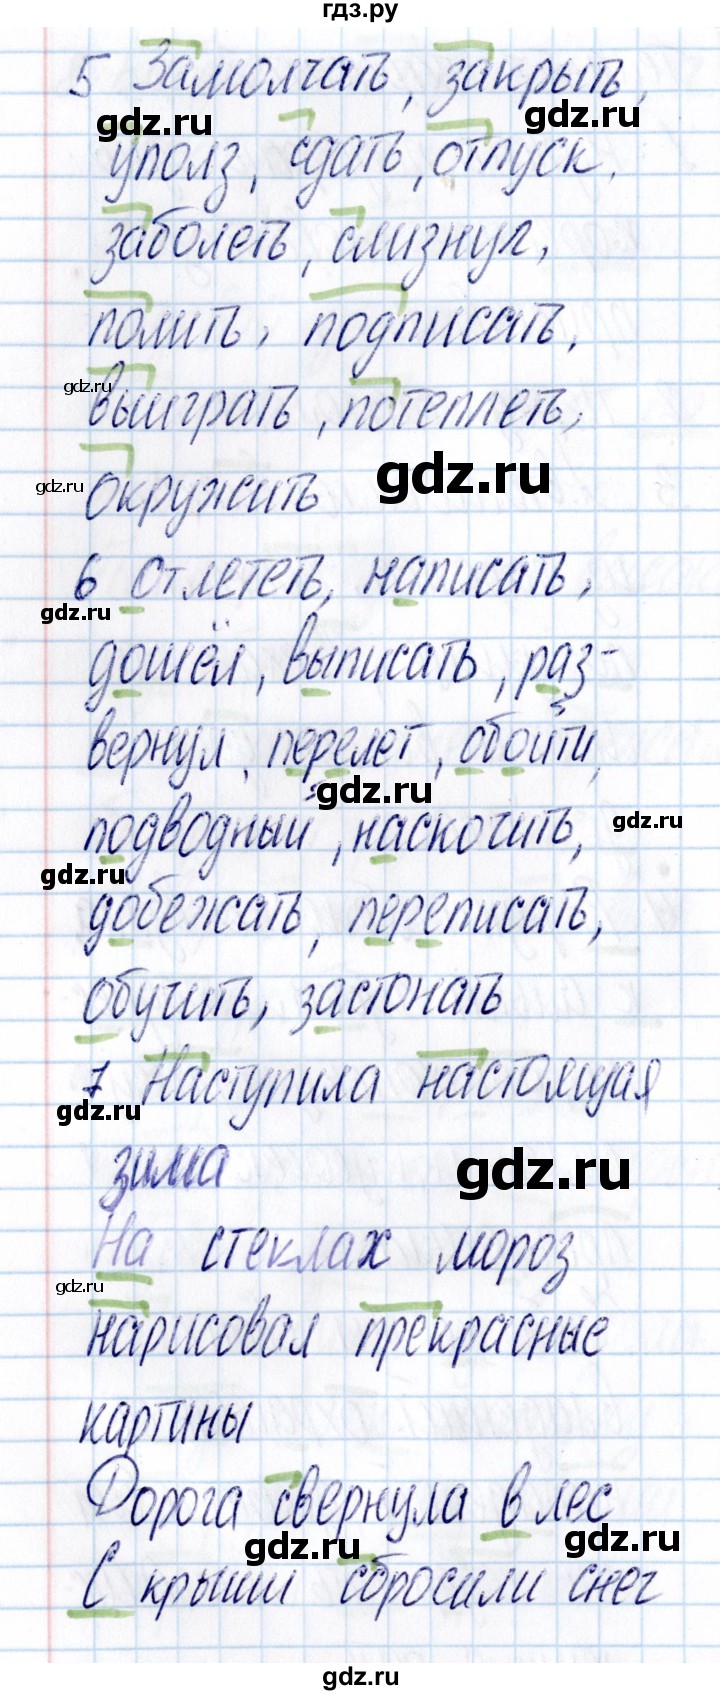 гдз.ру
5 Замолчать, закрыть,
gdz.ru
gdz.ru
уполз, сдать, отпуск,
заболеть, слизнул,
полить, подписать,
gdz.ru
выиграть, потеплеть,
gdz.ru
gdz.ru
окружить
6 отлететь, написать,
gdz.ru
дошёл, выписать, раз-
вернул, перелёт, обойти,
gdz.ru
gdz.ru
подводный, наскочить,
gdz.ru
добежать, переписать,
обучить, застонать
7 Наступила настоящая
gdz.ru
зима
gdz.ru
На стеклах мороз
gdz.ru
нарисовал прекрасные
картины
Дорога свернула в лес
gdz.ru
gdz.ru
С крыши сбросили снег
gdz.ru